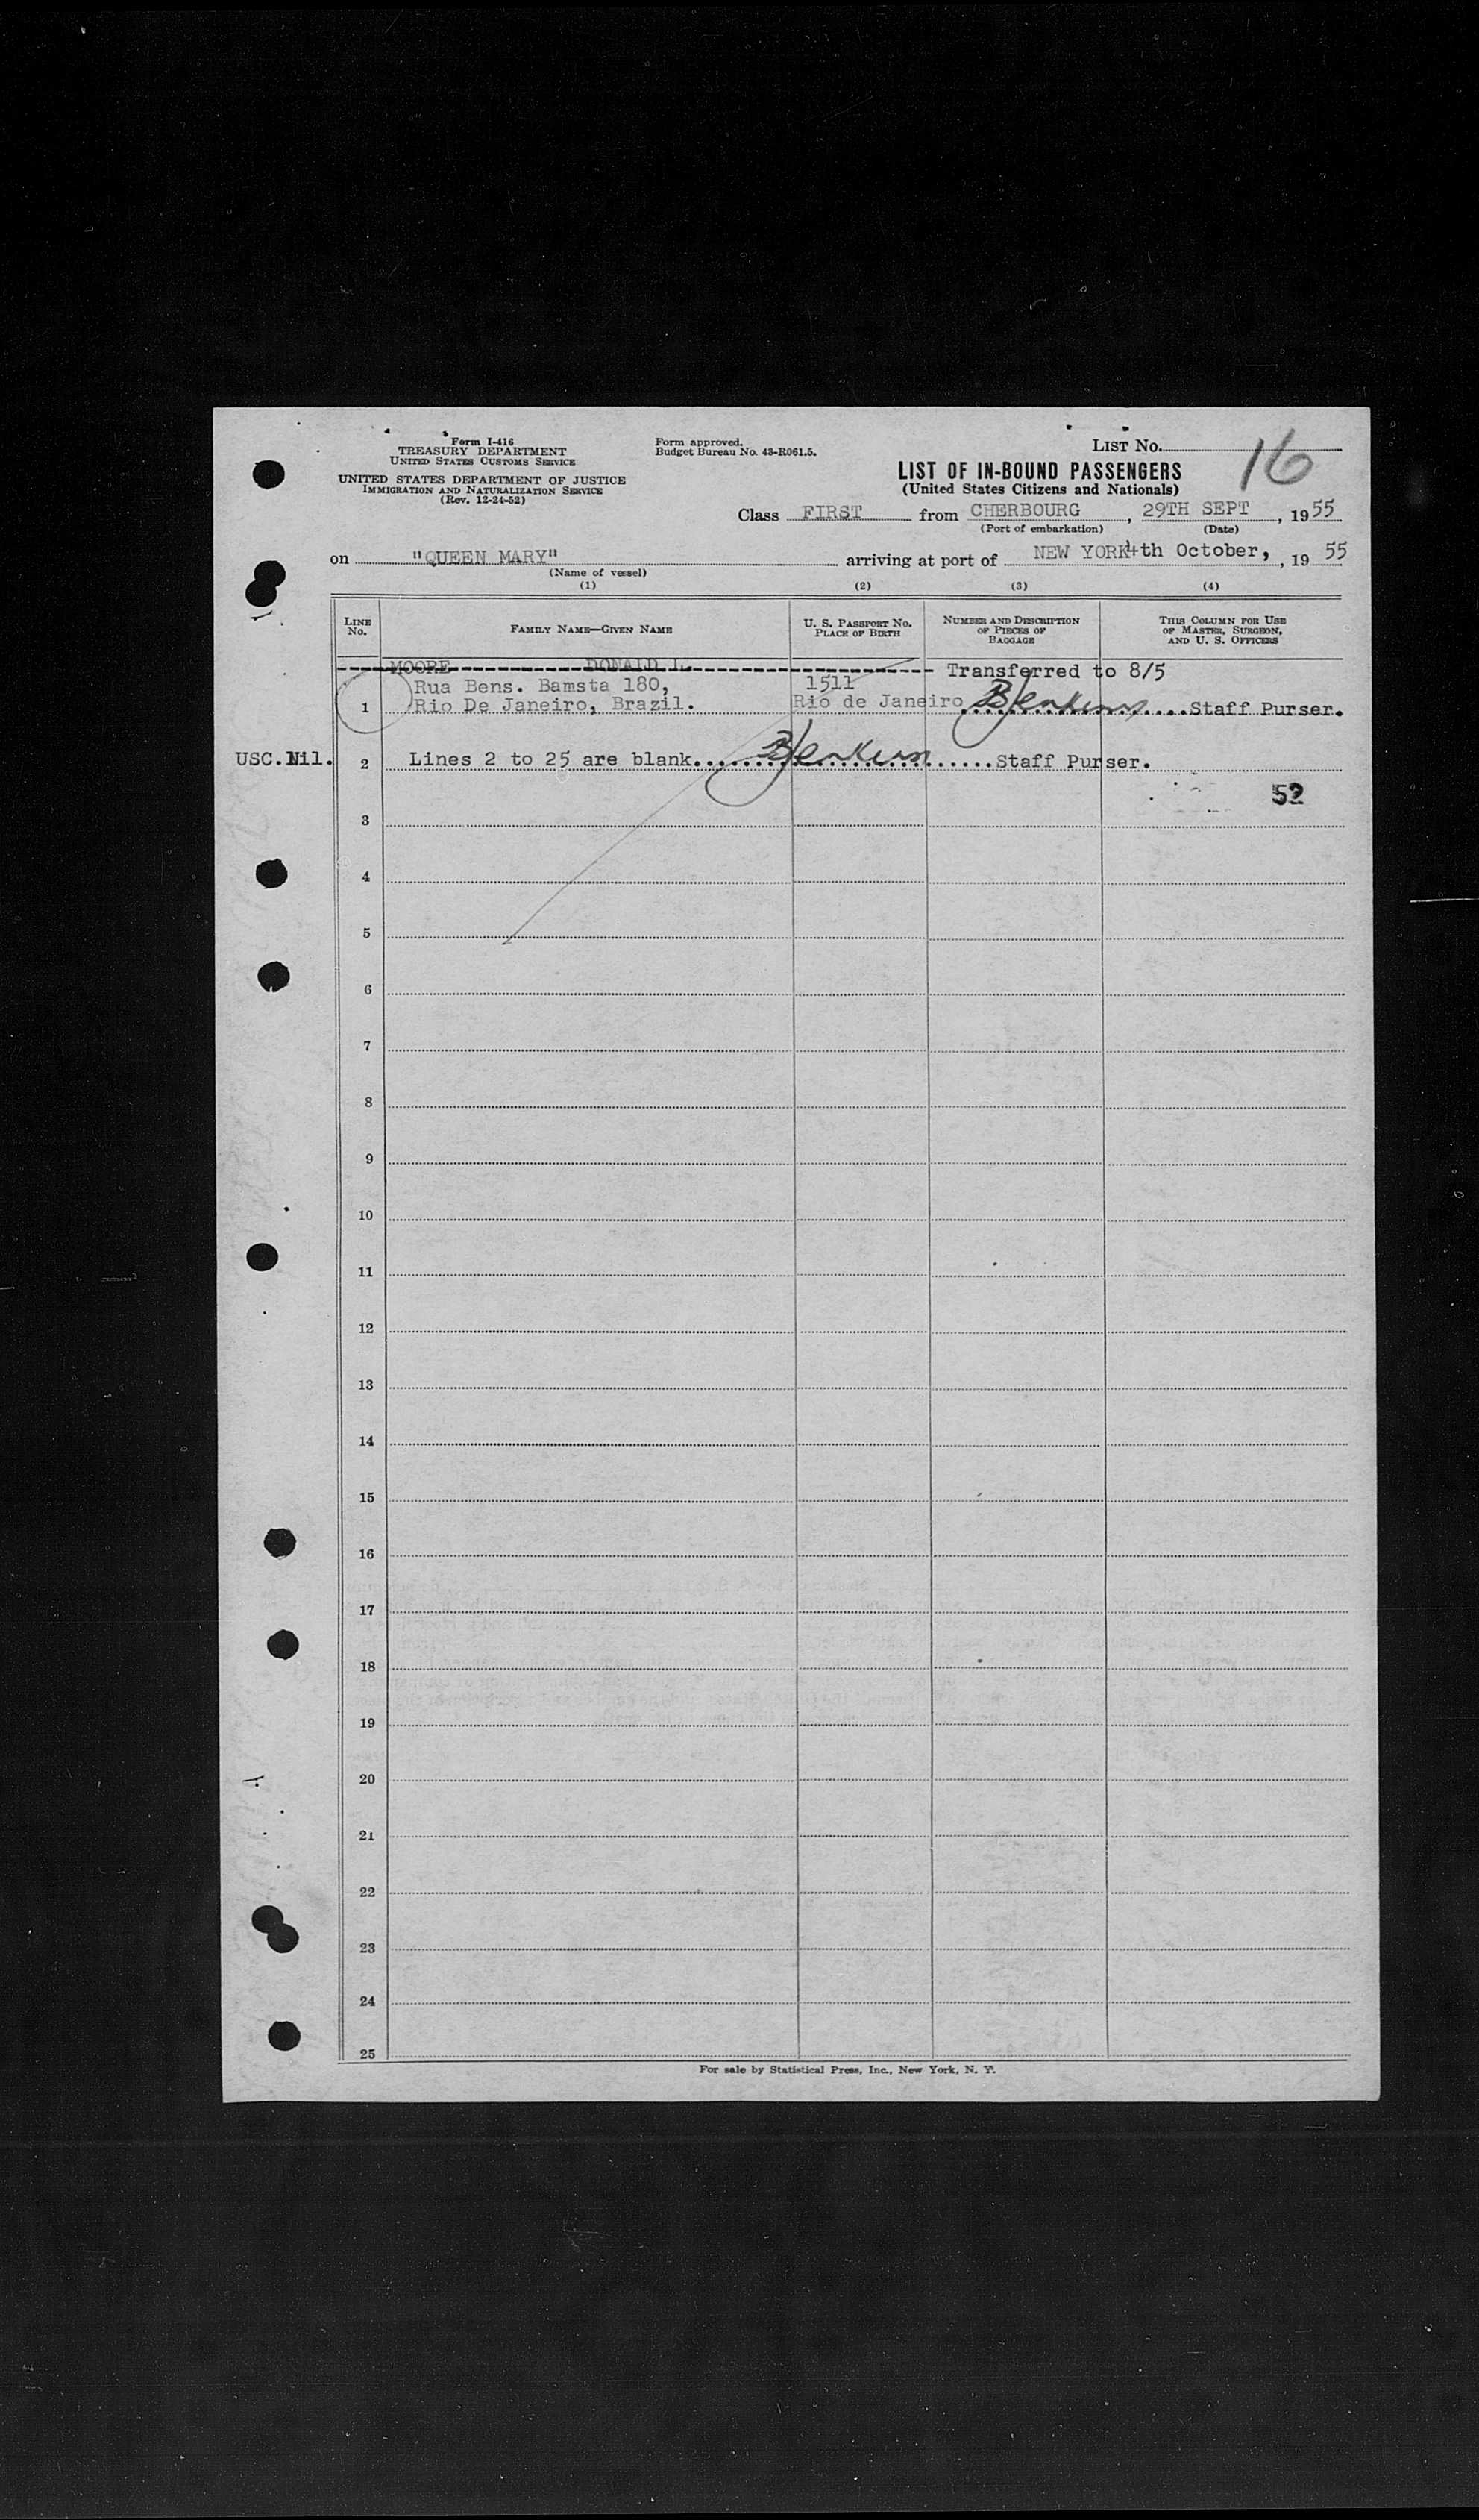 Form I-416
TREASURY DEPARTMENT
UNITED STATES CUSTOMS SERVICE
UNITED STATES DEPARTMENT OF JUSTICE
IMMIGRATION AND NATURALIZATION SERVICE
(Rev. 12-24-52)
Form approved.
Budget Bureau No. 43-R061.5.
LIST No. 16
LIST OF IN-BOUND PASSENGERS
(United States Citizens and Nationals)
Class FIRST from CHERBOURG, 29TH SEPT, 1955
(Port of embarkation) (Date)
on "QUEEN MARY" arriving at port of NEW YORK 4th October, , 1955
(Name of vessel)
(1) (2) (3) (4)
LINE No. FAMILY NAME—GIVEN NAME U. S. PASSPORT No. PLACE OF BIRTH NUMBER AND DESCRIPTION OF PIECES OF BAGGAGE THIS COLUMN FOR USE OF MASTER, SURGEON, AND U. S. OFFICERS
MOORE DONALD L. Transferred to 8/5
Rua Bens. Bamsta 180, 1511
1 Rio De Janeiro, Brazil. Rio de Janeiro BJenkins Staff Purser.
USC.Nil. 2 Lines 2 to 25 are blank. BJenkins Staff Purser.
52
3
4
5
6
7
8
9
10
11
12
13
14
15
16
17
18
19
20
21
22
23
24
25
For sale by Statistical Press, Inc., New York, N. Y.